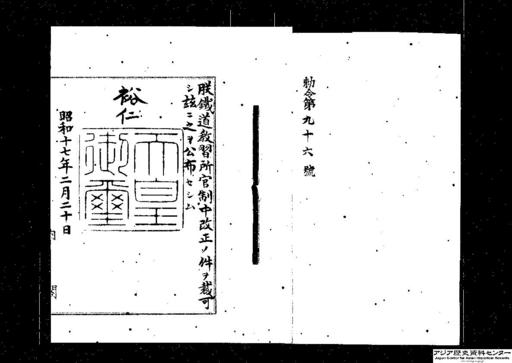 勅令第九十六號
朕鐵道教習所官制中改正ノ件ヲ裁可
シ茲ニ之ヲ公布セシム
裕仁
天皇御璽
昭和十七年二月二十日
内閣
アジア歴史資料センター
Japan Center for Asian Historical Records